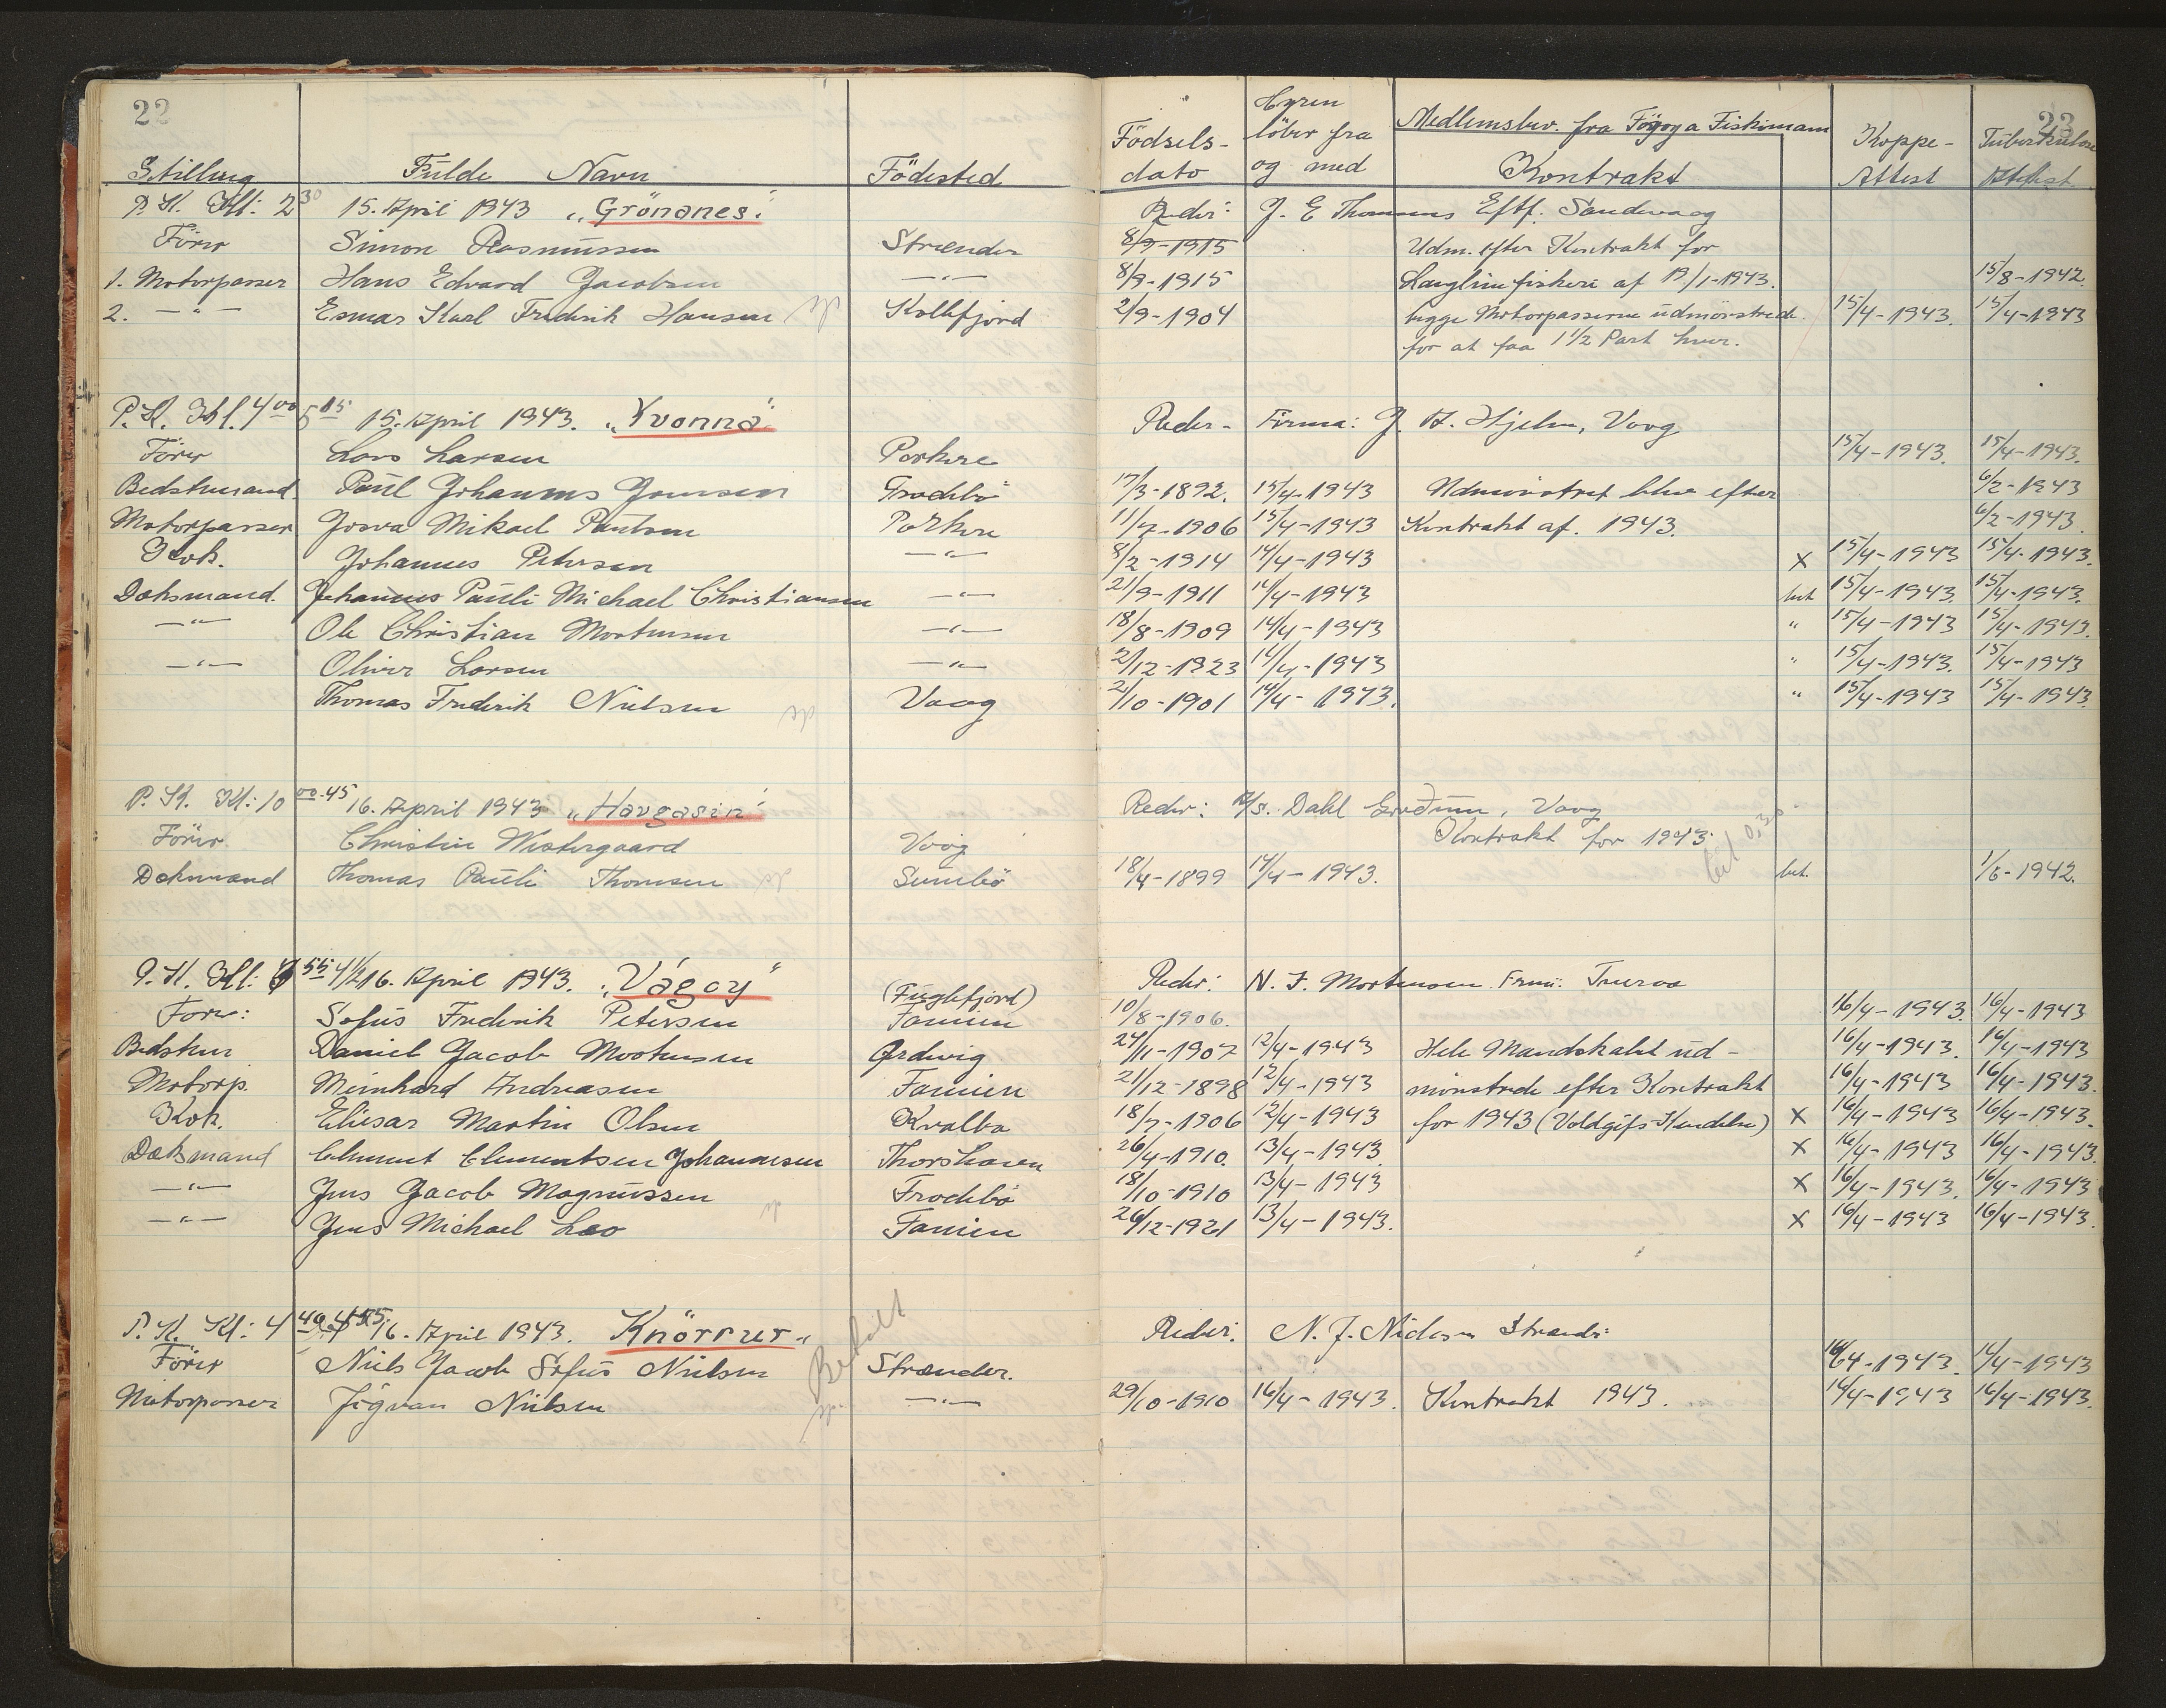 22
23
Stilling Fulde Navn Födested Födsels-dato Hyren löber fra og med Medlemsbev. fra Föroya Fiskimann Kontrakt Koppe-Attest Tuberkulose Attest
P. K. Kl: 2 30 15. April 1943 „Grönanes" Reder: J. E Thomsens Eftf. Sandvaag
Förer Simon Rasmussen Strænder 8/9-1915 Udm. efter Kontrakt for
1. Motorpasser Hans Edvard Jacobsen —"— 8/9-1915 Langlinefiskeri af 19/1-1943. 15/8-1942.
2. —"— Esmar Karl Frederik Hansen Kollefjord 2/9-1904 begge Motorpasserne udmönstrede 15/4-1943. 15/4-1943
for at faa 1 1/2 Part hver.
P. K. Kl. 4 00 5 15 15. April 1943. „Yvonna" Reder- Firma: J. H. Hjelm, Vaag
Förer Lars Larsen Porkere 15/4-1943. 15/4-1943.
Bedstemand Poul Johannes Joensen Frodebö 17/3-1892. 15/4-1943 Udmönstret blev efter 6/2-1943
Motorpasser Josva Mikael Poulsen Porkere 11/7-1906 15/4-1943 Kontrakt af. 1943. 6/2-1943.
Kok. Johannes Petersen —"— 8/2-1914 14/4-1943 X 15/4-1943 15/4-1943.
Dæksmand. Johannes Pauli Michael Christiansen —"— 21/9-1911 14/4-1943 bet 15/4-1943. 15/4-1943.
—"— Ole Christian Mortensen —"— 18/8-1909 14/4-1943 " 15/4-1943 15/4-1943.
—"— Oliver Larsen —"— 2/12-1923 14/4-1943 " 15/4-1943. 15/4-1943
Thomas Frederik Nielsen Vaag 2/10-1901 14/4-1943. " 15/4-1943 15/4-1943.
P. K. Kl: 10 00-45 16. April 1943 „Havgasin" Reder: A/S. Dahl Vaag
Förer Christin Westergaard Vaag Kontrakt for 1943.
Dekmand Thomas Pauli Thomsen Sumbö 18/4-1899 14/4-1943. bet. 1/6-1942.
P. K. Kl: 55 16. April 1943. „Vágoy" Reder: N. J. Mortensen. Tveraa
Förer: Sofus Frederik Petersen (Fuglefjord) Famien 10/8-1906. 16/4-1943. 16/4-1943
Bedstem Daniel Jacob Mortensen Ordevig 24/11-1907 12/4-1943 Hele Mandskabet ud- 16/4-1943. 16/4-1943
Motorp. Meinhard Andreasen Famien 21/12-1898 12/4-1943 mönstrede efter Kontrakt 16/4-1943 16/4-1943.
Kok. Eliesar Martin Olsen Kvalbø 18/7-1906 12/4-1943 for 1943 (Voldgifs-Kendelse) X 16/4-1943 16/4-1943.
Dæksmand Clement Clementsen Johannesen Thorshavn 26/4-1910. 13/4-1943. X 16/4-1943 16/4-1943.
—"— Jens Jacob Magnussen Frodebö 18/10-1910 13/4-1943 X 16/4-1943. 16/4-1943
—"— Jens Michael Leo Famien 26/12-1921 13/4-1943. X 16/4-1943 16/4-1943.
P. K. Kl: 4 40 16. April 1943. „Knörrur" Reder: N. J. Nielsen Strænder
Förer Niels Jacob Sofus Nielsen Betalt Strænder. 16/4-1943. 14/4-1943
Motorpasser Jógvan Nielsen —"— 29/10-1910 16/4-1943. Kontrakt 1943. 16/4-1943 16/4-1943.